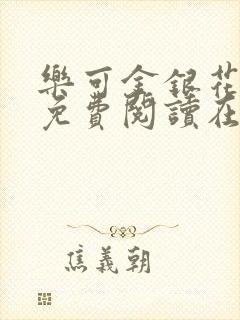 樂可金銀花
免費閱讀在
焦義朝